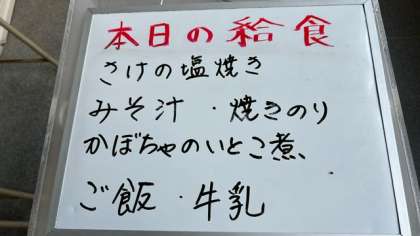 本日の給食
さけの塩焼き
みそ汁・焼きのり
かぼちゃのいとこ煮
ご飯・牛乳